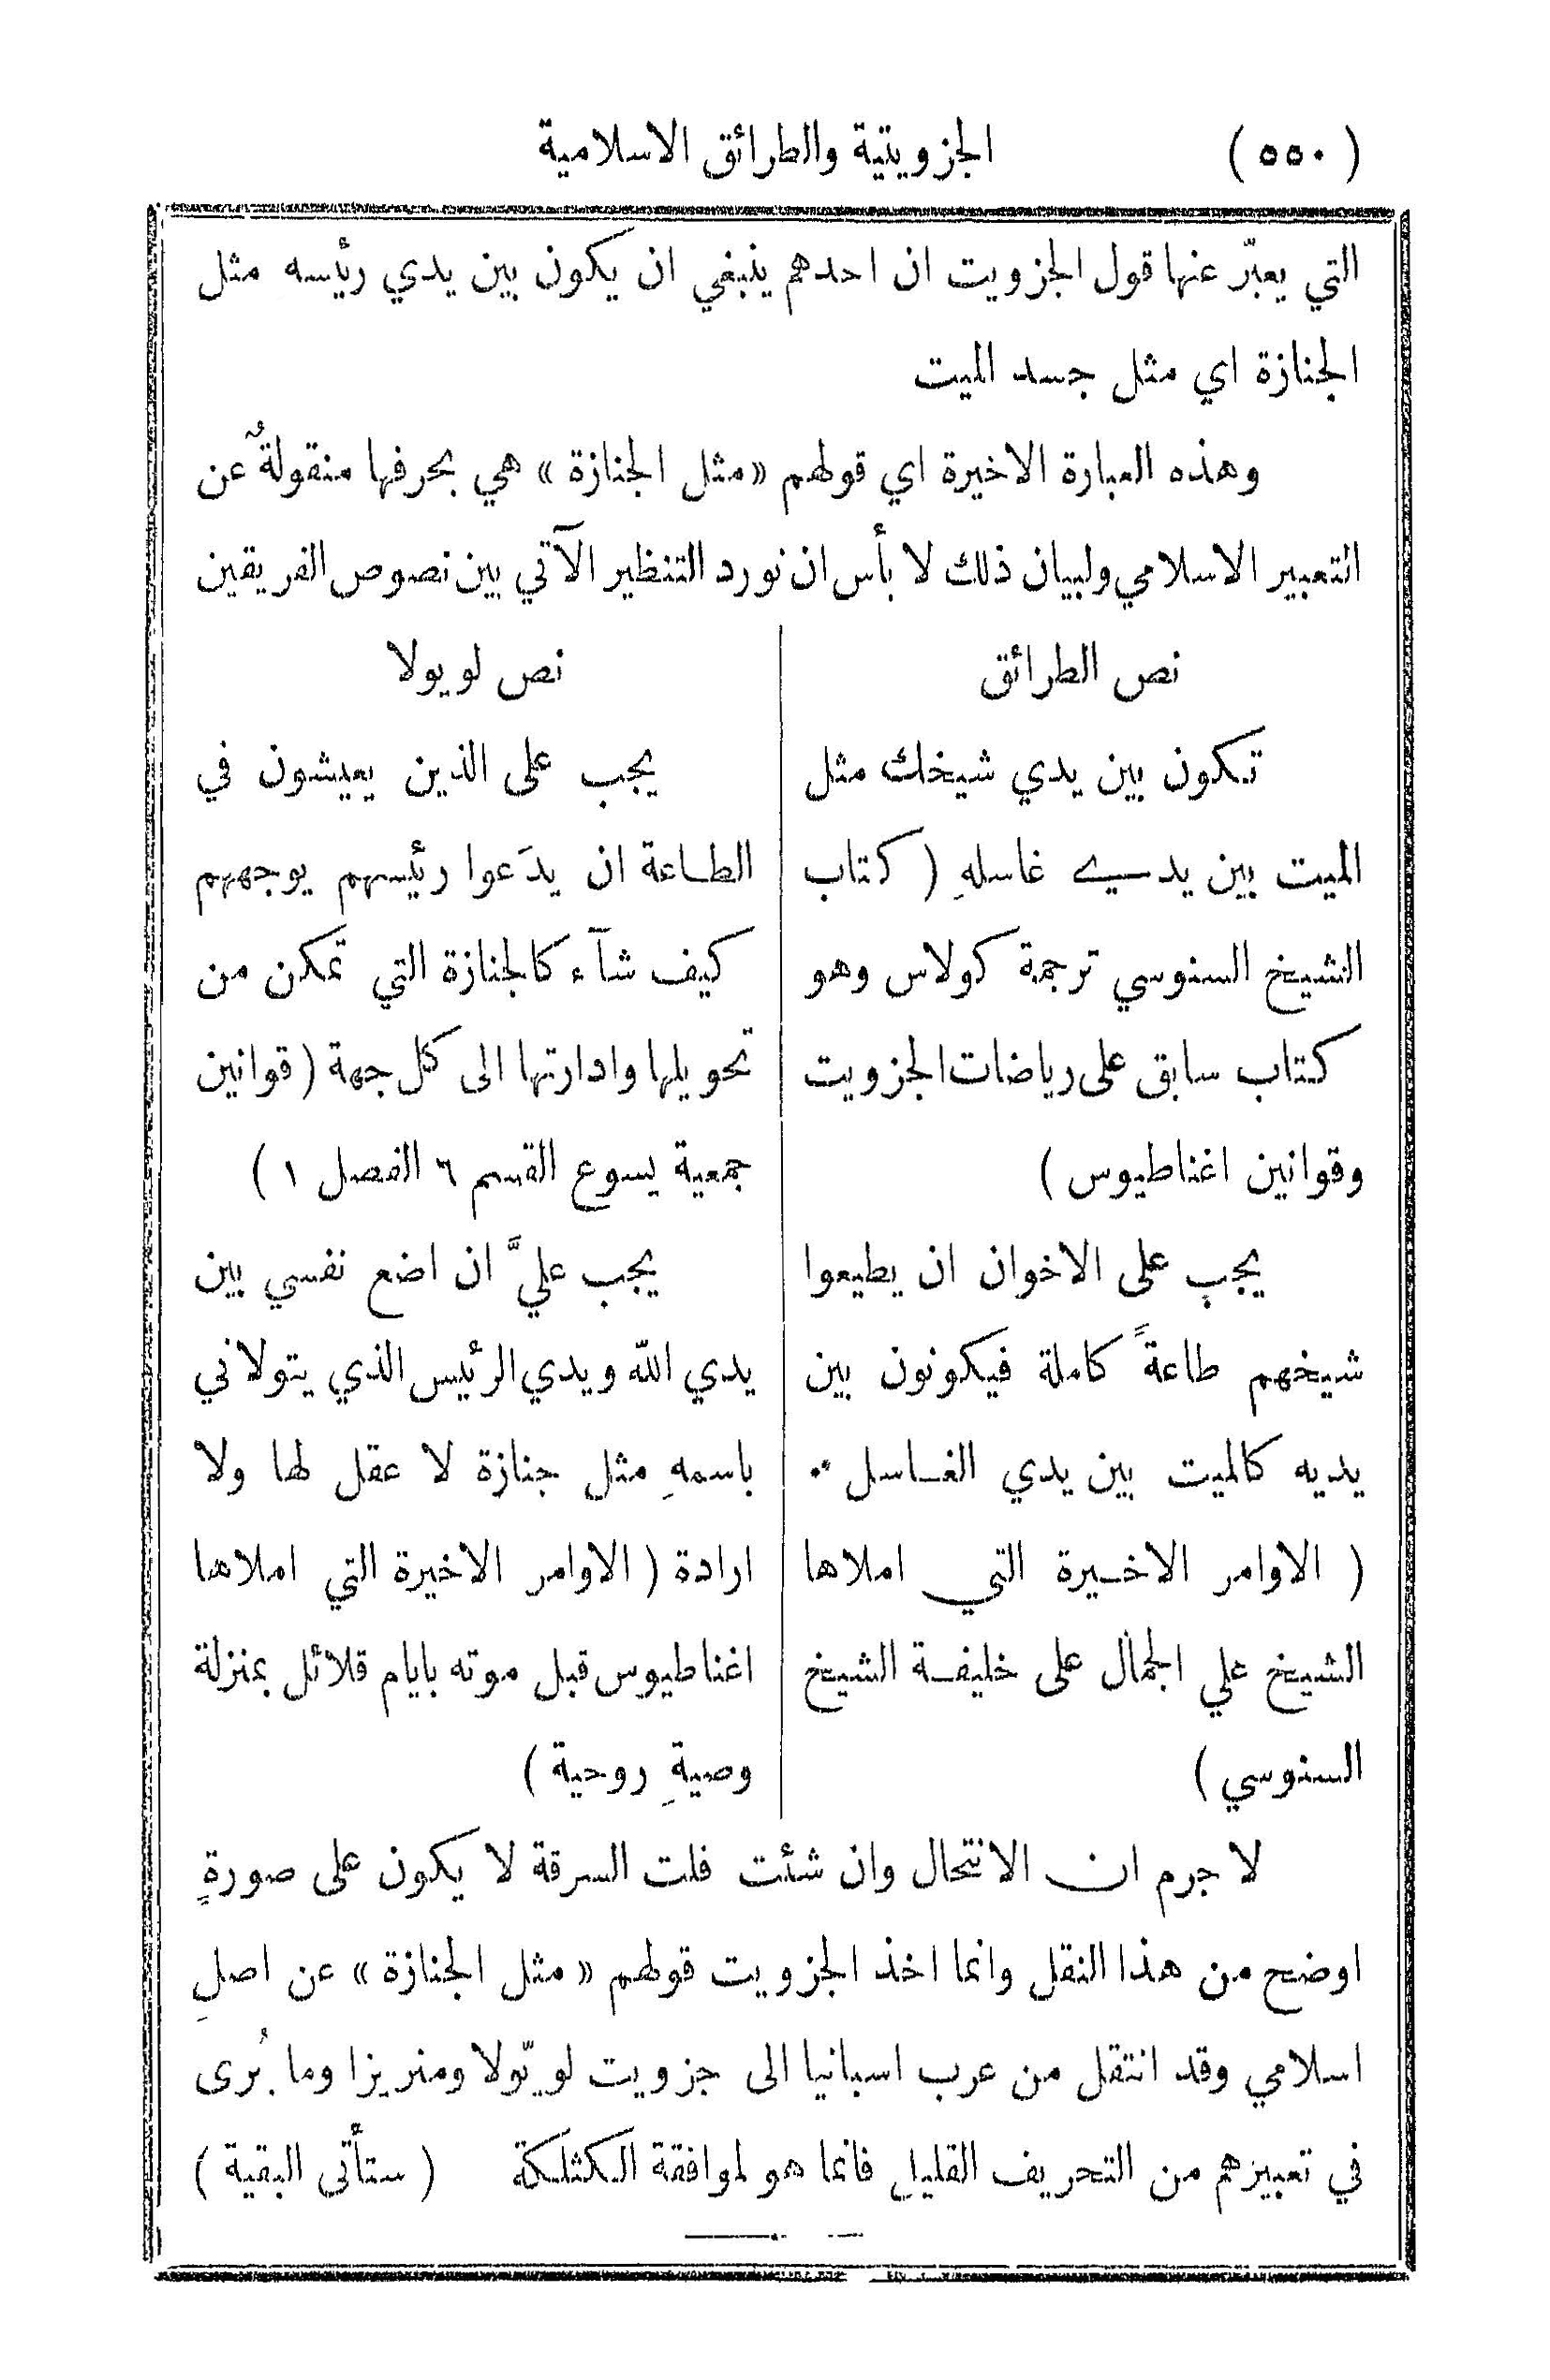 (٥٥٠) الجزويتية والطرائق الاسلامية
التي يعبّر عنها قول الجزويت ان احدهم ينبغي ان يكون بين يدي رئيسه مثل
الجنازة اي مثل جسد الميت
وهذه العبارة الاخيرة اي قولهم «مثل الجنازة» هي بحرفها منقولةٌ عن
التعبير الاسلامي ولبيان ذلك لا بأس ان نورد التنظير الآتي بين نصوص الفريقين
نص الطرائق
تكون بين يدي شيخك مثل
الميت بين يدي غاسلهِ (كتاب
الشيخ السنوسي ترجمة كولاس وهو
كتاب سابق على رياضات الجزويت
وقوانين اغناطيوس)
يجب على الاخوان ان يطيعوا
شيخهم طاعةً كاملة فيكونون بين
يديه كالميت بين يدي الغاسل ٠٠
(الاوامر الاخيرة التي املاها
الشيخ علي الجمال على خليفة الشيخ
السنوسي)
نص لويولا
يجب على الذين يعيشون في
الطاعة ان يدَعوا رئيسهم يوجههم
كيف شآء كالجنازة التي تمكن من
تحويلها وادارتها الى كل جهة (قوانين
جمعية يسوع القسم ٦ الفصل ١)
يجب عليَّ ان اضع نفسي بين
يدي الله ويدي الرئيس الذي يتولاني
باسمهِ مثل جنازة لا عقل لها ولا
ارادة (الاوامر الاخيرة التي املاها
اغناطيوس قبل موته بايام قلائل بمنزلة
وصيةِ روحية)
لا جرم ان الانتحال وان شئت فلت السرقة لا يكون على صورةٍ
اوضح من هذا النقل وانما اخذ الجزويت قولهم «مثل الجنازة» عن اصلٍ
اسلامي وقد انتقل من عرب اسبانيا الى جزويت لويّولا ومنريزا وما يُرى
في تعبيرهم من التحريف القليل فانما هو لموافقة الكثلكة (ستأتى البقية)